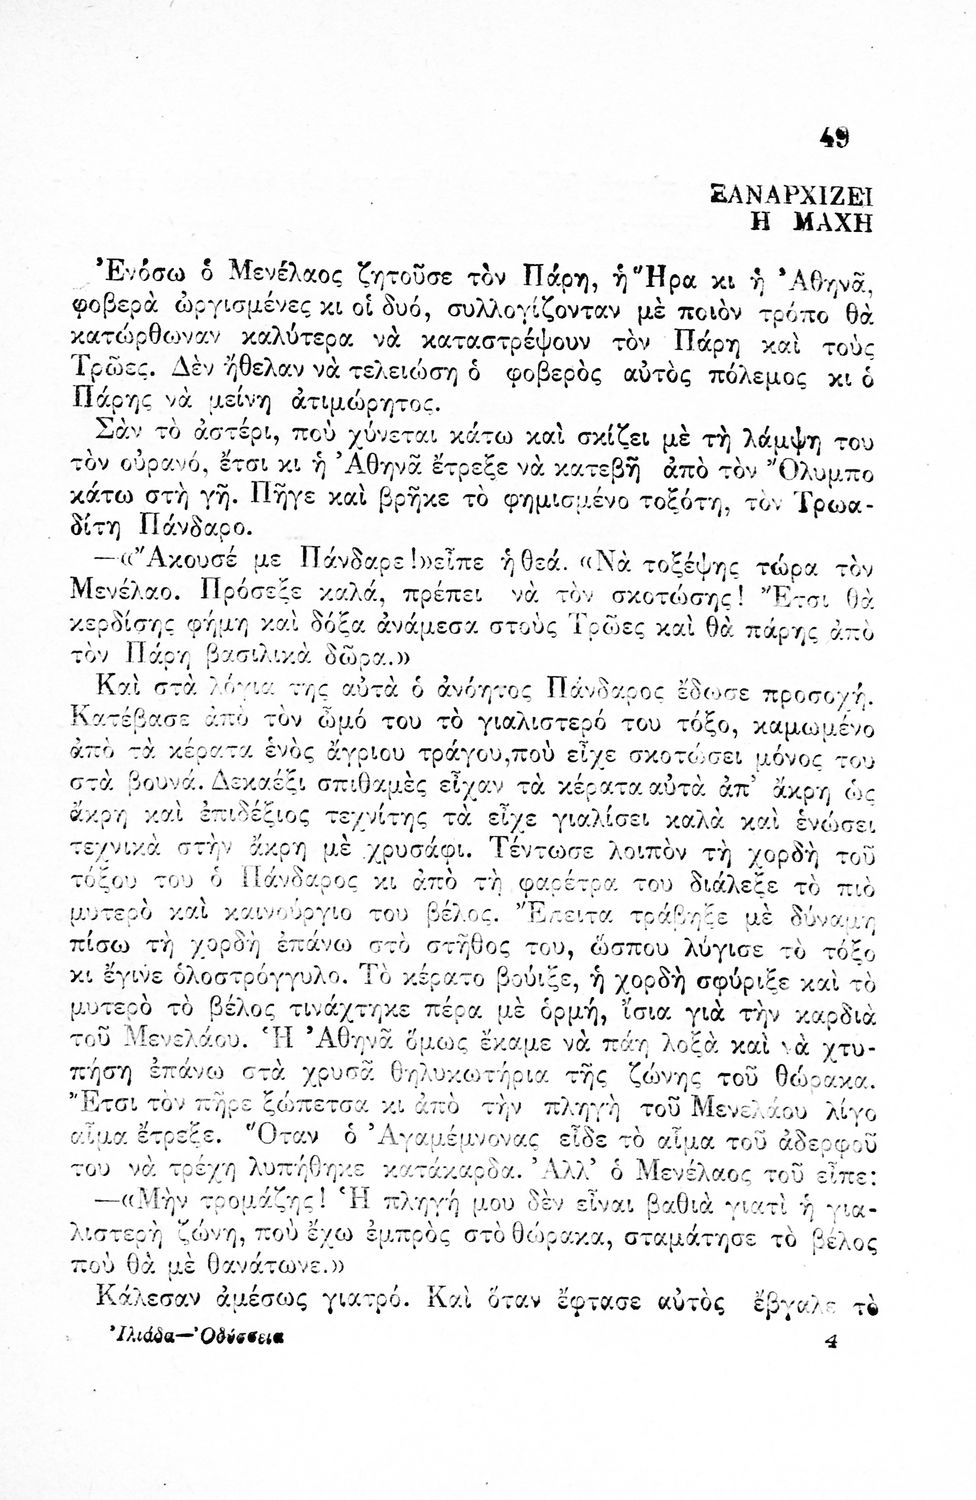 49
ΞΑΝΑΡΧΙΖΕΙ
Η ΜΑΧΗ
Ἐνόσω ὁ Μενέλαος ζητοῦσε τὸν Πάρη, ἡ Ἥρα κι ἡ Ἀθηνᾶ,
φοβερὰ ὠργισμένες κι οἱ δυό, συλλογίζονταν μὲ ποιὸν τρόπο θὰ
κατώρθωναν καλύτερα νὰ καταστρέψουν τὸν Πάρη καὶ τοὺς
Τρῶες. Δὲν ἤθελαν νὰ τελειώση ὁ φοβερὸς αὐτὸς πόλεμος κι ὁ
Πάρης νὰ μείνη ἀτιμώρητος.
Σὰν τὸ ἀστέρι, ποὺ χύνεται κάτω καὶ σκίζει μὲ τὴ λάμψη του
τὸν οὐρανό, ἔτσι κι ἡ Ἀθηνᾶ ἔτρεξε νὰ κατεβῆ ἀπὸ τὸν Ὄλυμπο
κάτω στὴ γῆ. Πῆγε καὶ βρῆκε τὸ φημισμένο τοξότη, τὸν Τρωα-
δίτη Πάνδαρο.
—«Ἄκουσέ με Πάνδαρε!»εἶπε ἡ θεά. «Νὰ τοξέψης τώρα τὸν
Μενέλαο. Πρόσεξε καλά, πρέπει νὰ τὸν σκοτώσης! Ἔτσι θὰ
κερδίσης φήμη καὶ δόξα ἀνάμεσα στοὺς Τρῶες καὶ θὰ πάρης ἀπὸ
τὸν Πάρη βασιλικὰ δῶρα.»
Καὶ στὰ λόγια της αὐτὰ ὁ ἀνόητος Πάνδαρος ἔδωσε προσοχή.
Κατέβασε ἀπὸ τὸν ὦμό του τὸ γιαλιστερό του τόξο, καμωμένο
ἀπὸ τὰ κέρατα ἑνὸς ἄγριου τράγου,ποὺ εἶχε σκοτώσει μόνος του
στὰ βουνά. Δεκαέξι σπιθαμὲς εἶχαν τὰ κέρατα αὐτὰ ἀπ᾿ ἄκρη ὡς
ἄκρη καὶ ἐπιδέξιος τεχνίτης τὰ εἶχε γιαλίσει καλὰ καὶ ἑνώσει
τεχνικὰ στὴν ἄκρη μὲ χρυσάφι. Τέντωσε λοιπὸν τὴ χορδὴ τοῦ
τόξου του ὁ Πάνδαρος κι ἀπὸ τὴ φαρέτρα του διάλεξε τὸ πιὸ
μυτερὸ καὶ καινούργιο του βέλος. Ἔπειτα τράβηξε μὲ δύναμη
πίσω τὴ χορδὴ ἐπάνω στὸ στῆθος του, ὥσπου λύγισε τὸ τόξο
κι ἔγινε ὁλοστρόγγυλο. Τὸ κέρατο βούιξε, ἡ χορδὴ σφύριξε καὶ τὸ
μυτερὸ τὸ βέλος τινάχτηκε πέρα μὲ ὁρμή, ἴσια γιὰ τὴν καρδιὰ
τοῦ Μενελάου. Ἡ Ἀθηνᾶ ὅμως ἔκαμε νὰ πάη λοξὰ καὶ νὰ χτυ-
πήση ἐπάνω στὰ χρυσᾶ θηλυκωτήρια τῆς ζώνης τοῦ θώρακα.
Ἔτσι τὸν πῆρε ξώπετσα κι ἀπὸ τὴν πληγὴ τοῦ Μενελάου λίγο
αἷμα ἔτρεξε. Ὅταν ὁ Ἀγαμέμνονας εἶδε τὸ αἷμα τοῦ ἀδερφοῦ
του νὰ τρέχη λυπήθηκε κατάκαρδα. Ἀλλ᾿ ὁ Μενέλαος τοῦ εἶπε:
—«Μὴν τρομάζης! Ἡ πληγή μου δὲν εἶναι βαθιὰ γιατὶ ἡ για-
λιστερὴ ζώνη, ποὺ ἔχω ἐμπρὸς στὸ θώρακα, σταμάτησε τὸ βέλος
ποὺ θὰ μὲ θανάτωνε.»
Κάλεσαν ἀμέσως γιατρό. Καὶ ὅταν ἔφτασε αὐτὸς ἔβγαλε τὸ
Ἰλιάδα—Ὀδύσσεια 4